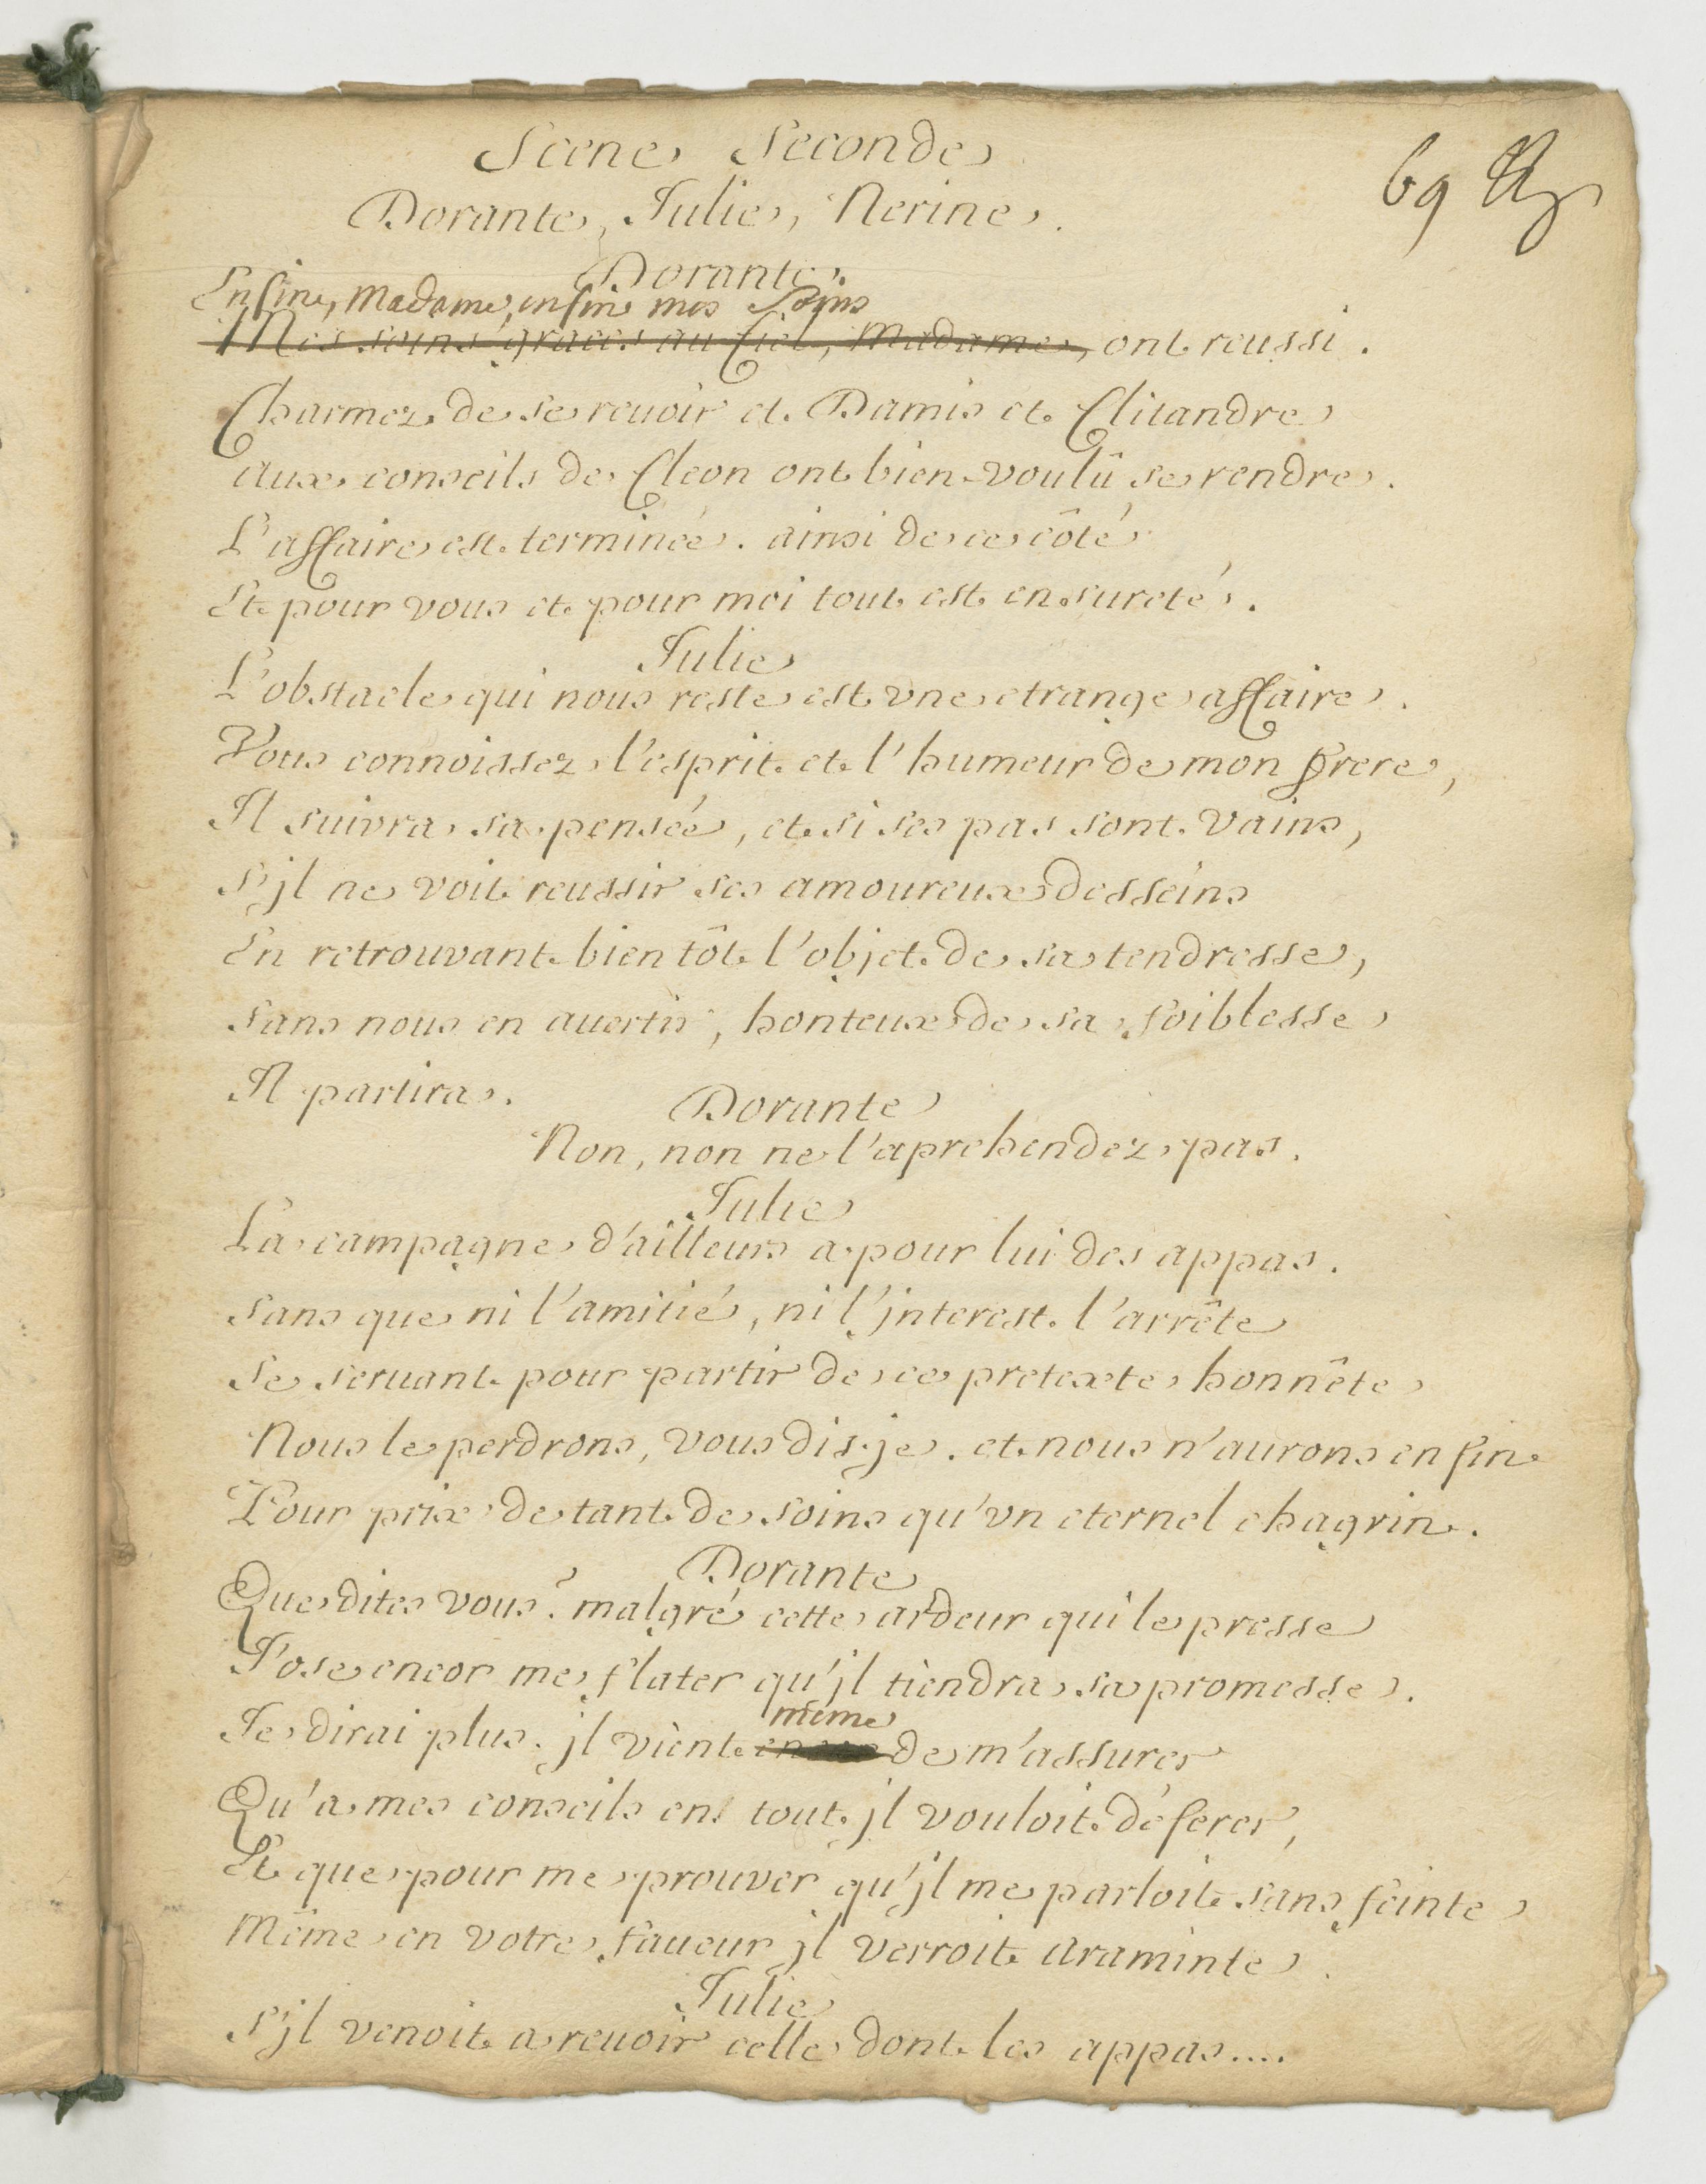 Scene Seconde
69
Dorante, Julie, Nerine.
Dorante.
Enfin, Madame, enfin mes Soins
Mes soins graces au Ciel, Madame, ont reussi.
Charmez de se reuoir et Damis et Clitandre
Aux conseils de Cleon ont bien voulû se rendre.
L'affaire est terminée. ainsi de ce côté
Et pour vous et pour moi tout est en sureté.
Julie
L'obstacle qui nous reste est vne etrange affaire.
Vous connoissez l'esprit et l'humeur de mon frere,
Il suivra sa pensée, et si ses pas sont vains,
S'jl ne voit reussir ses amoureux desseins
En retrouvant bien tôt l'objet de sa tendresse,
Sans nous en auertir, honteux de sa foiblesse
Il partira.
Dorante
Non, non ne l'aprehendez pas.
Julie
La campagne d'ailleurs a pour lui des appas.
Sans que ni l'amitié, ni l'jnterest l'arrête
Se seruant pour partir de ce pretexte honnête
Nous le perdrons, vous dis-je. et nous n'aurons en fin
Pour prix de tant de soins qu'vn eternel chagrin.
Dorante
Que dites vous? malgré cette ardeur qui le presse
J'ose encor me flater qu'jl tiendra sa promesse.
même
Je dirai plus. jl vient encor de m'assurer
Qu'a mes conseils en tout jl vouloit déferer,
Et que pour me prouver qu'jl me parloit sans feinte
Même en votre faueur jl verroit Araminte.
Julie
S'jl venoit a reuoir celle dont les appas....